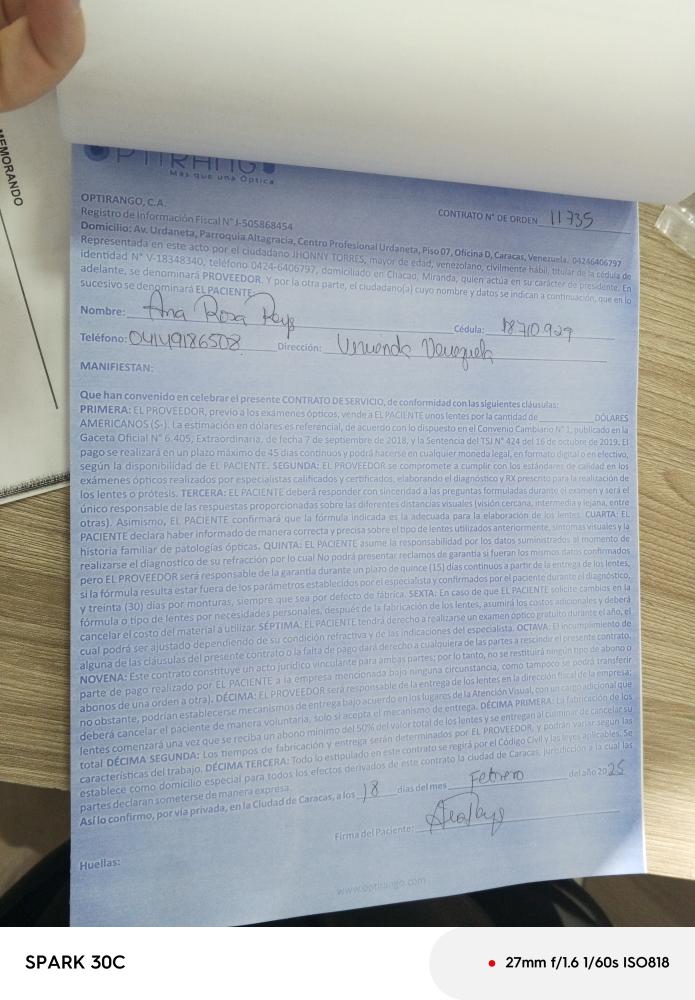 MEMORANDO
OPTIRANGO
Más que una Óptica
OPTIRANGO, C.A.
CONTRATO N° DE ORDEN 11735
Registro de Información Fiscal N° J-505868454
Domicilio: Av. Urdaneta, Parroquia Altagracia, Centro Profesional Urdaneta, Piso 07, Oficina D, Caracas, Venezuela. 04246406797
Representada en este acto por el ciudadano JHONNY TORRES, mayor de edad, venezolano, civilmente hábil, titular de la cédula de
identidad N° V-18348340, teléfono 0424-6406797, domiciliado en Chacao, Miranda, quien actúa en su carácter de presidente. En
adelante, se denominará PROVEEDOR. Y por la otra parte, el ciudadano(a) cuyo nombre y datos se indican a continuación, que en lo
sucesivo se denominará EL PACIENTE:
Nombre: Ana Rosa Cédula: 18710929
Teléfono: 04149186508 Dirección:
MANIFIESTAN:
Que han convenido en celebrar el presente CONTRATO DE SERVICIO, de conformidad con las siguientes cláusulas:
PRIMERA: EL PROVEEDOR, previo a los exámenes ópticos, vende a EL PACIENTE unos lentes por la cantidad de ________ DÓLARES
AMERICANOS ($-). La estimación en dólares es referencial, de acuerdo con lo dispuesto en el Convenio Cambiario N° 1, publicado en la
Gaceta Oficial N° 6.405, Extraordinaria, de fecha 7 de septiembre de 2018, y la Sentencia del TSJ N° 424 del 16 de octubre de 2019. El
pago se realizará en un plazo máximo de 45 días continuos y podrá hacerse en cualquier moneda legal, en formato digital o en efectivo,
según la disponibilidad de EL PACIENTE. SEGUNDA: EL PROVEEDOR se compromete a cumplir con los estándares de calidad en los
exámenes ópticos realizados por especialistas calificados y certificados, elaborando el diagnóstico y RX prescrito para la realización de
los lentes o prótesis. TERCERA: EL PACIENTE deberá responder con sinceridad a las preguntas formuladas durante el examen y será el
único responsable de las respuestas proporcionadas sobre las diferentes distancias visuales (visión cercana, intermedia y lejana, entre
otras). Asimismo, EL PACIENTE confirmará que la fórmula indicada es la adecuada para la elaboración de los lentes. CUARTA: EL
PACIENTE declara haber informado de manera correcta y precisa sobre el tipo de lentes utilizados anteriormente, síntomas visuales y la
historia familiar de patologías ópticas. QUINTA: EL PACIENTE asume la responsabilidad por los datos suministrados al momento de
realizarse el diagnostico de su refracción por lo cual No podrá presentar reclamos de garantía si fueran los mismos datos confirmados
pero EL PROVEEDOR será responsable de la garantía durante un plazo de quince (15) días continuos a partir de la entrega de los lentes,
si la fórmula resulta estar fuera de los parámetros establecidos por el especialista y confirmados por el paciente durante el diagnóstico,
y treinta (30) días por monturas, siempre que sea por defecto de fábrica. SEXTA: En caso de que EL PACIENTE solicite cambios en la
fórmula o tipo de lentes por necesidades personales, después de la fabricación de los lentes, asumirá los costos adicionales y deberá
cancelar el costo del material a utilizar. SÉPTIMA: EL PACIENTE tendrá derecho a realizarse un examen óptico gratuito durante el año, el
cual podrá ser ajustado dependiendo de su condición refractiva y de las indicaciones del especialista. OCTAVA: El incumplimiento de
alguna de las cláusulas del presente contrato o la falta de pago dará derecho a cualquiera de las partes a rescindir el presente contrato.
NOVENA: Este contrato constituye un acto jurídico vinculante para ambas partes; por lo tanto, no se restituirá ningún tipo de abono o
parte de pago realizado por EL PACIENTE a la empresa mencionada bajo ninguna circunstancia, como tampoco se podrá transferir
abonos de una orden a otra). DÉCIMA: EL PROVEEDOR será responsable de la entrega de los lentes en la dirección fiscal de la empresa;
no obstante, podrían establecerse mecanismos de entrega bajo acuerdo en los lugares de la Atención Visual, con un cargo adicional que
deberá cancelar el paciente de manera voluntaria, solo si acepta el mecanismo de entrega. DÉCIMA PRIMERA: La fabricación de los
lentes comenzará una vez que se reciba un abono mínimo del 50% del valor total de los lentes y se entregan al culminar de cancelar su
total DÉCIMA SEGUNDA: Los tiempos de fabricación y entrega serán determinados por EL PROVEEDOR, y podrán variar según las
características del trabajo. DÉCIMA TERCERA: Todo lo estipulado en este contrato se regirá por el Código Civil y las leyes aplicables. Se
establece como domicilio especial para todos los efectos derivados de este contrato la ciudad de Caracas, jurisdicción a la cual las
partes declaran someterse de manera expresa.
Así lo confirmo, por vía privada, en la Ciudad de Caracas, a los 18 días del mes Febrero del año 2025
Firma del Paciente:
Huellas:
www.optirango.com
SPARK 30C
27mm f/1.6 1/60s ISO818